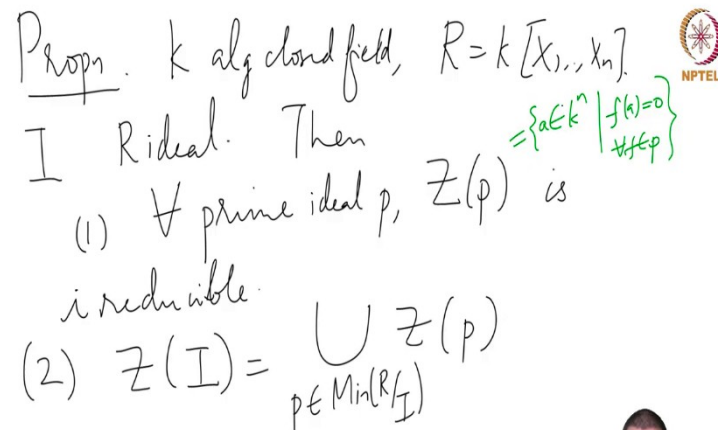 Propn. k alg closed field, R = k[X1,..,Xn].
NPTEL
I R ideal. Then
= {a ∈ k^n | f(a)=0 ∀ f ∈ p}
(1) ∀ prime ideal p, Z(p) is
irreducible.
(2) Z(I) = ⋃ Z(p)
p ∈ Min(R/I)